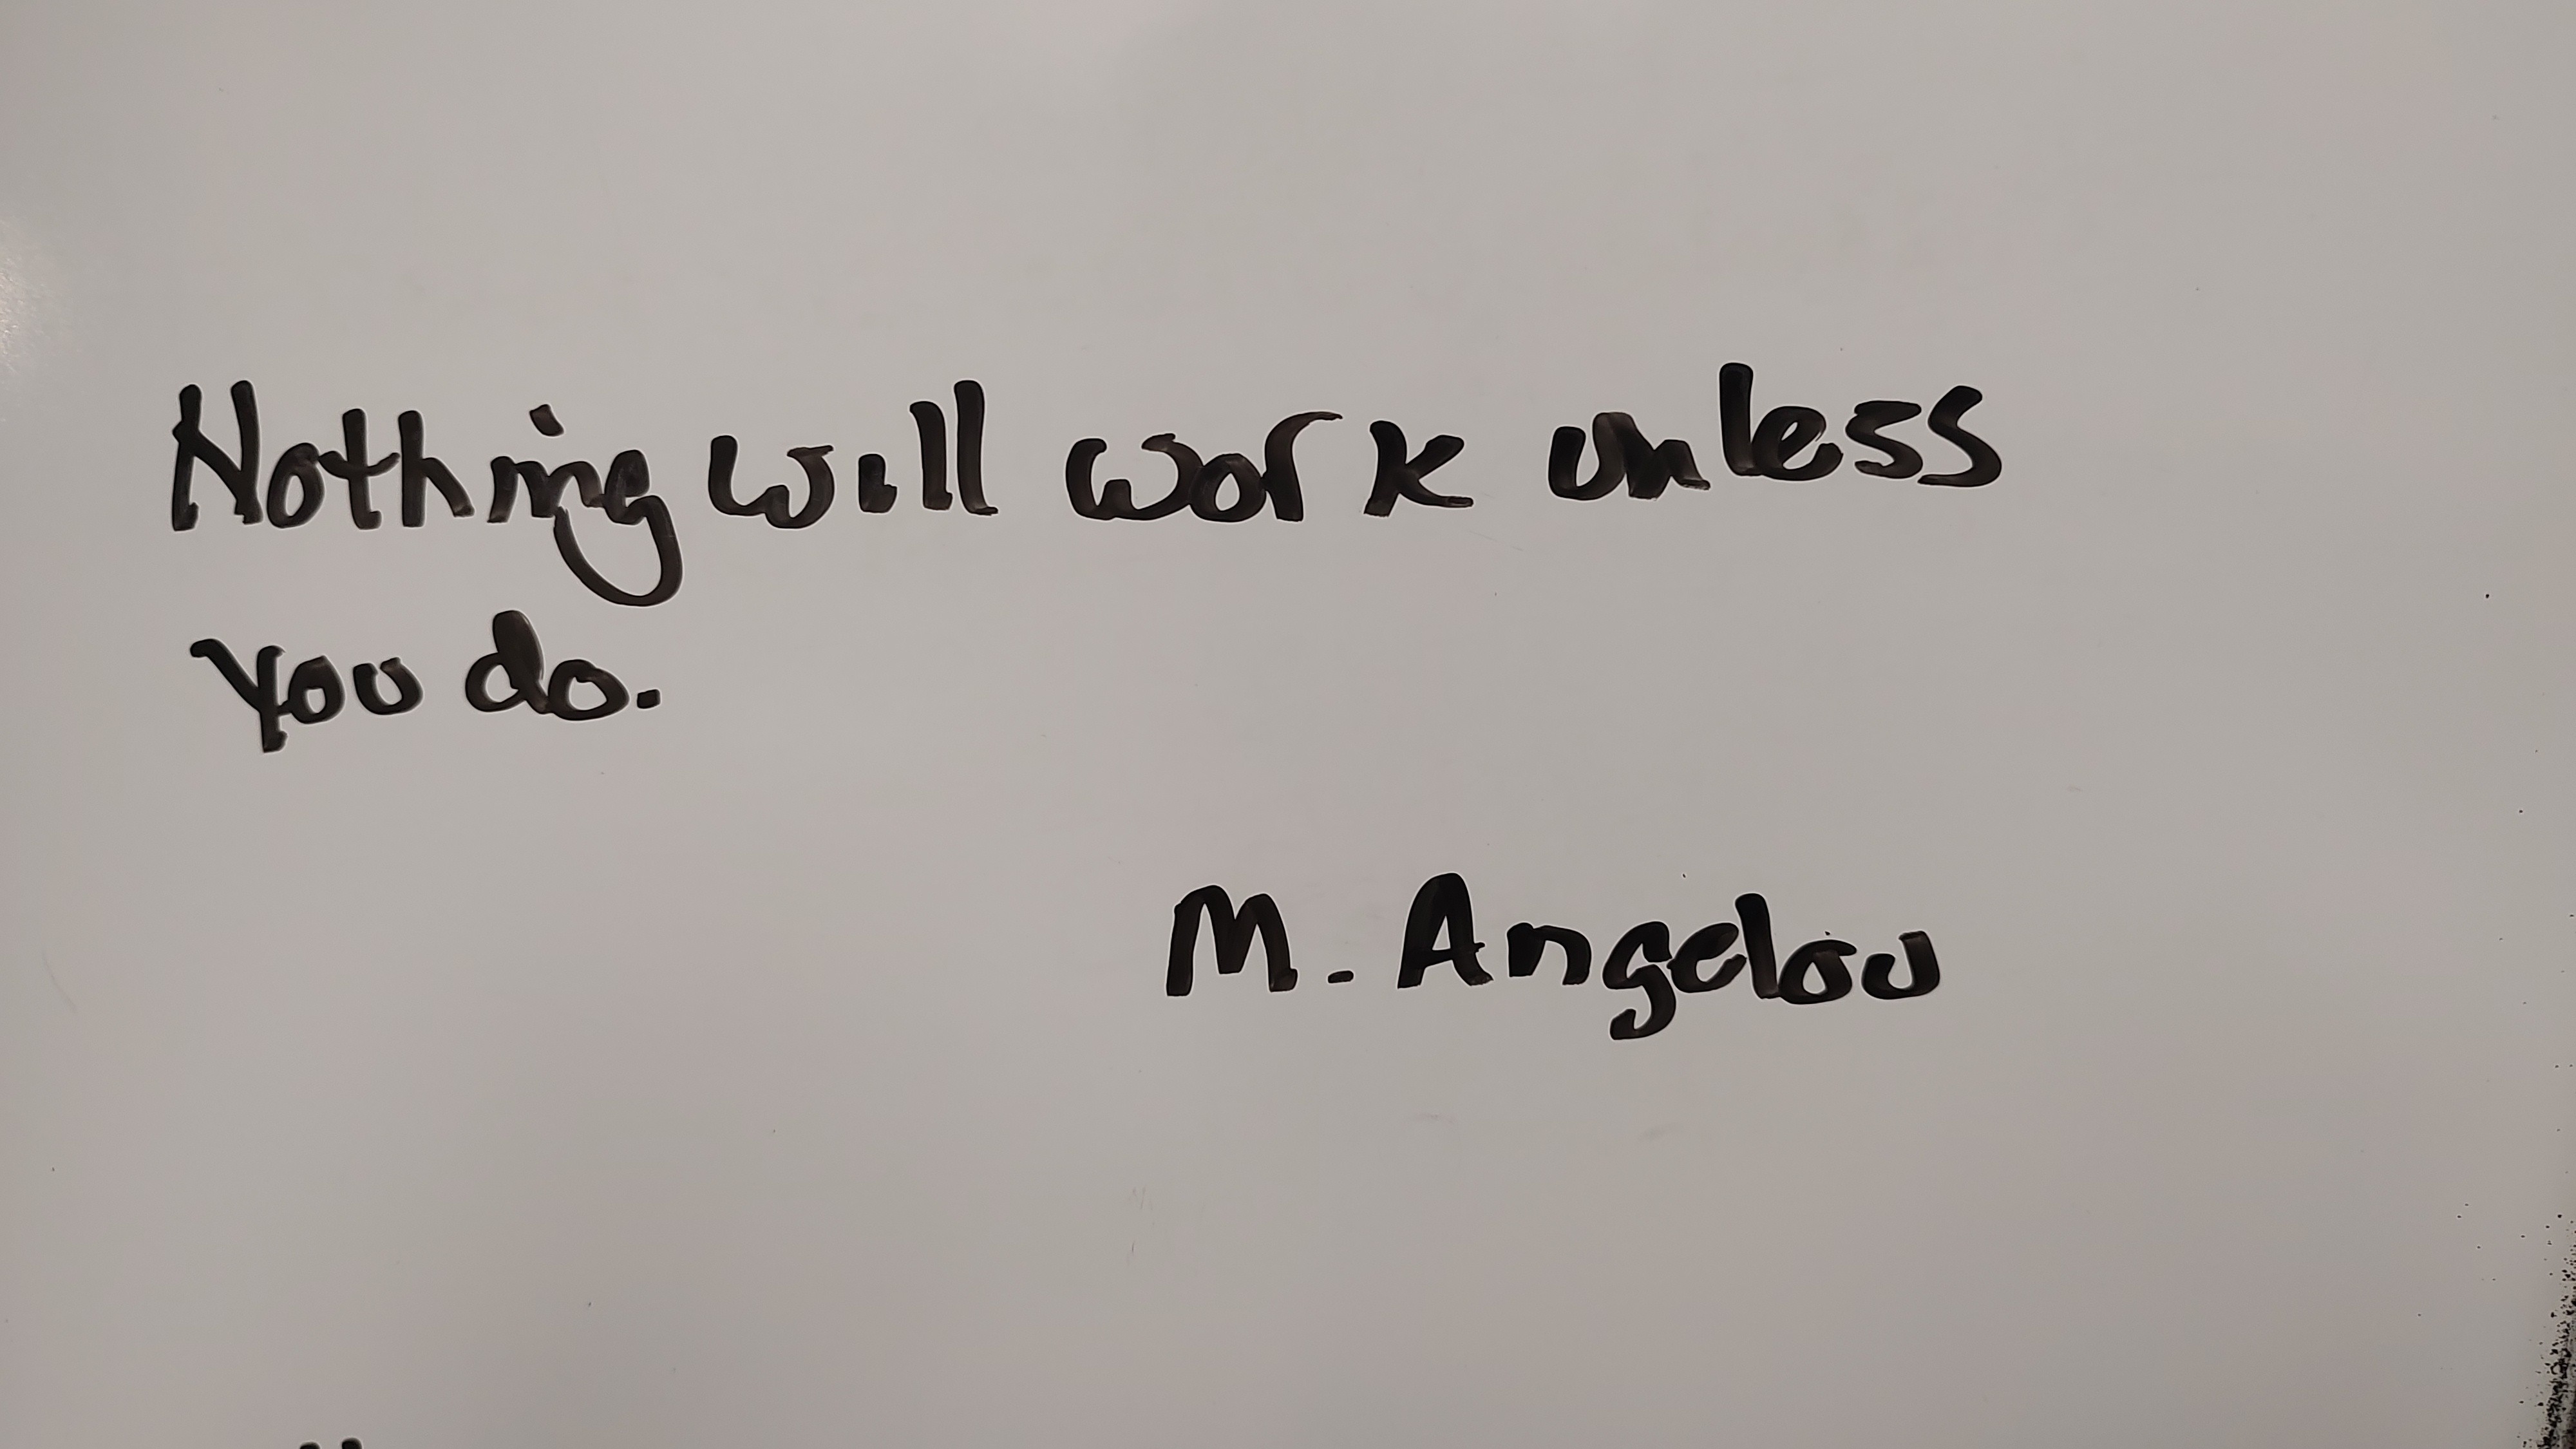 Nothing will work unless
you do.
M. Angelou